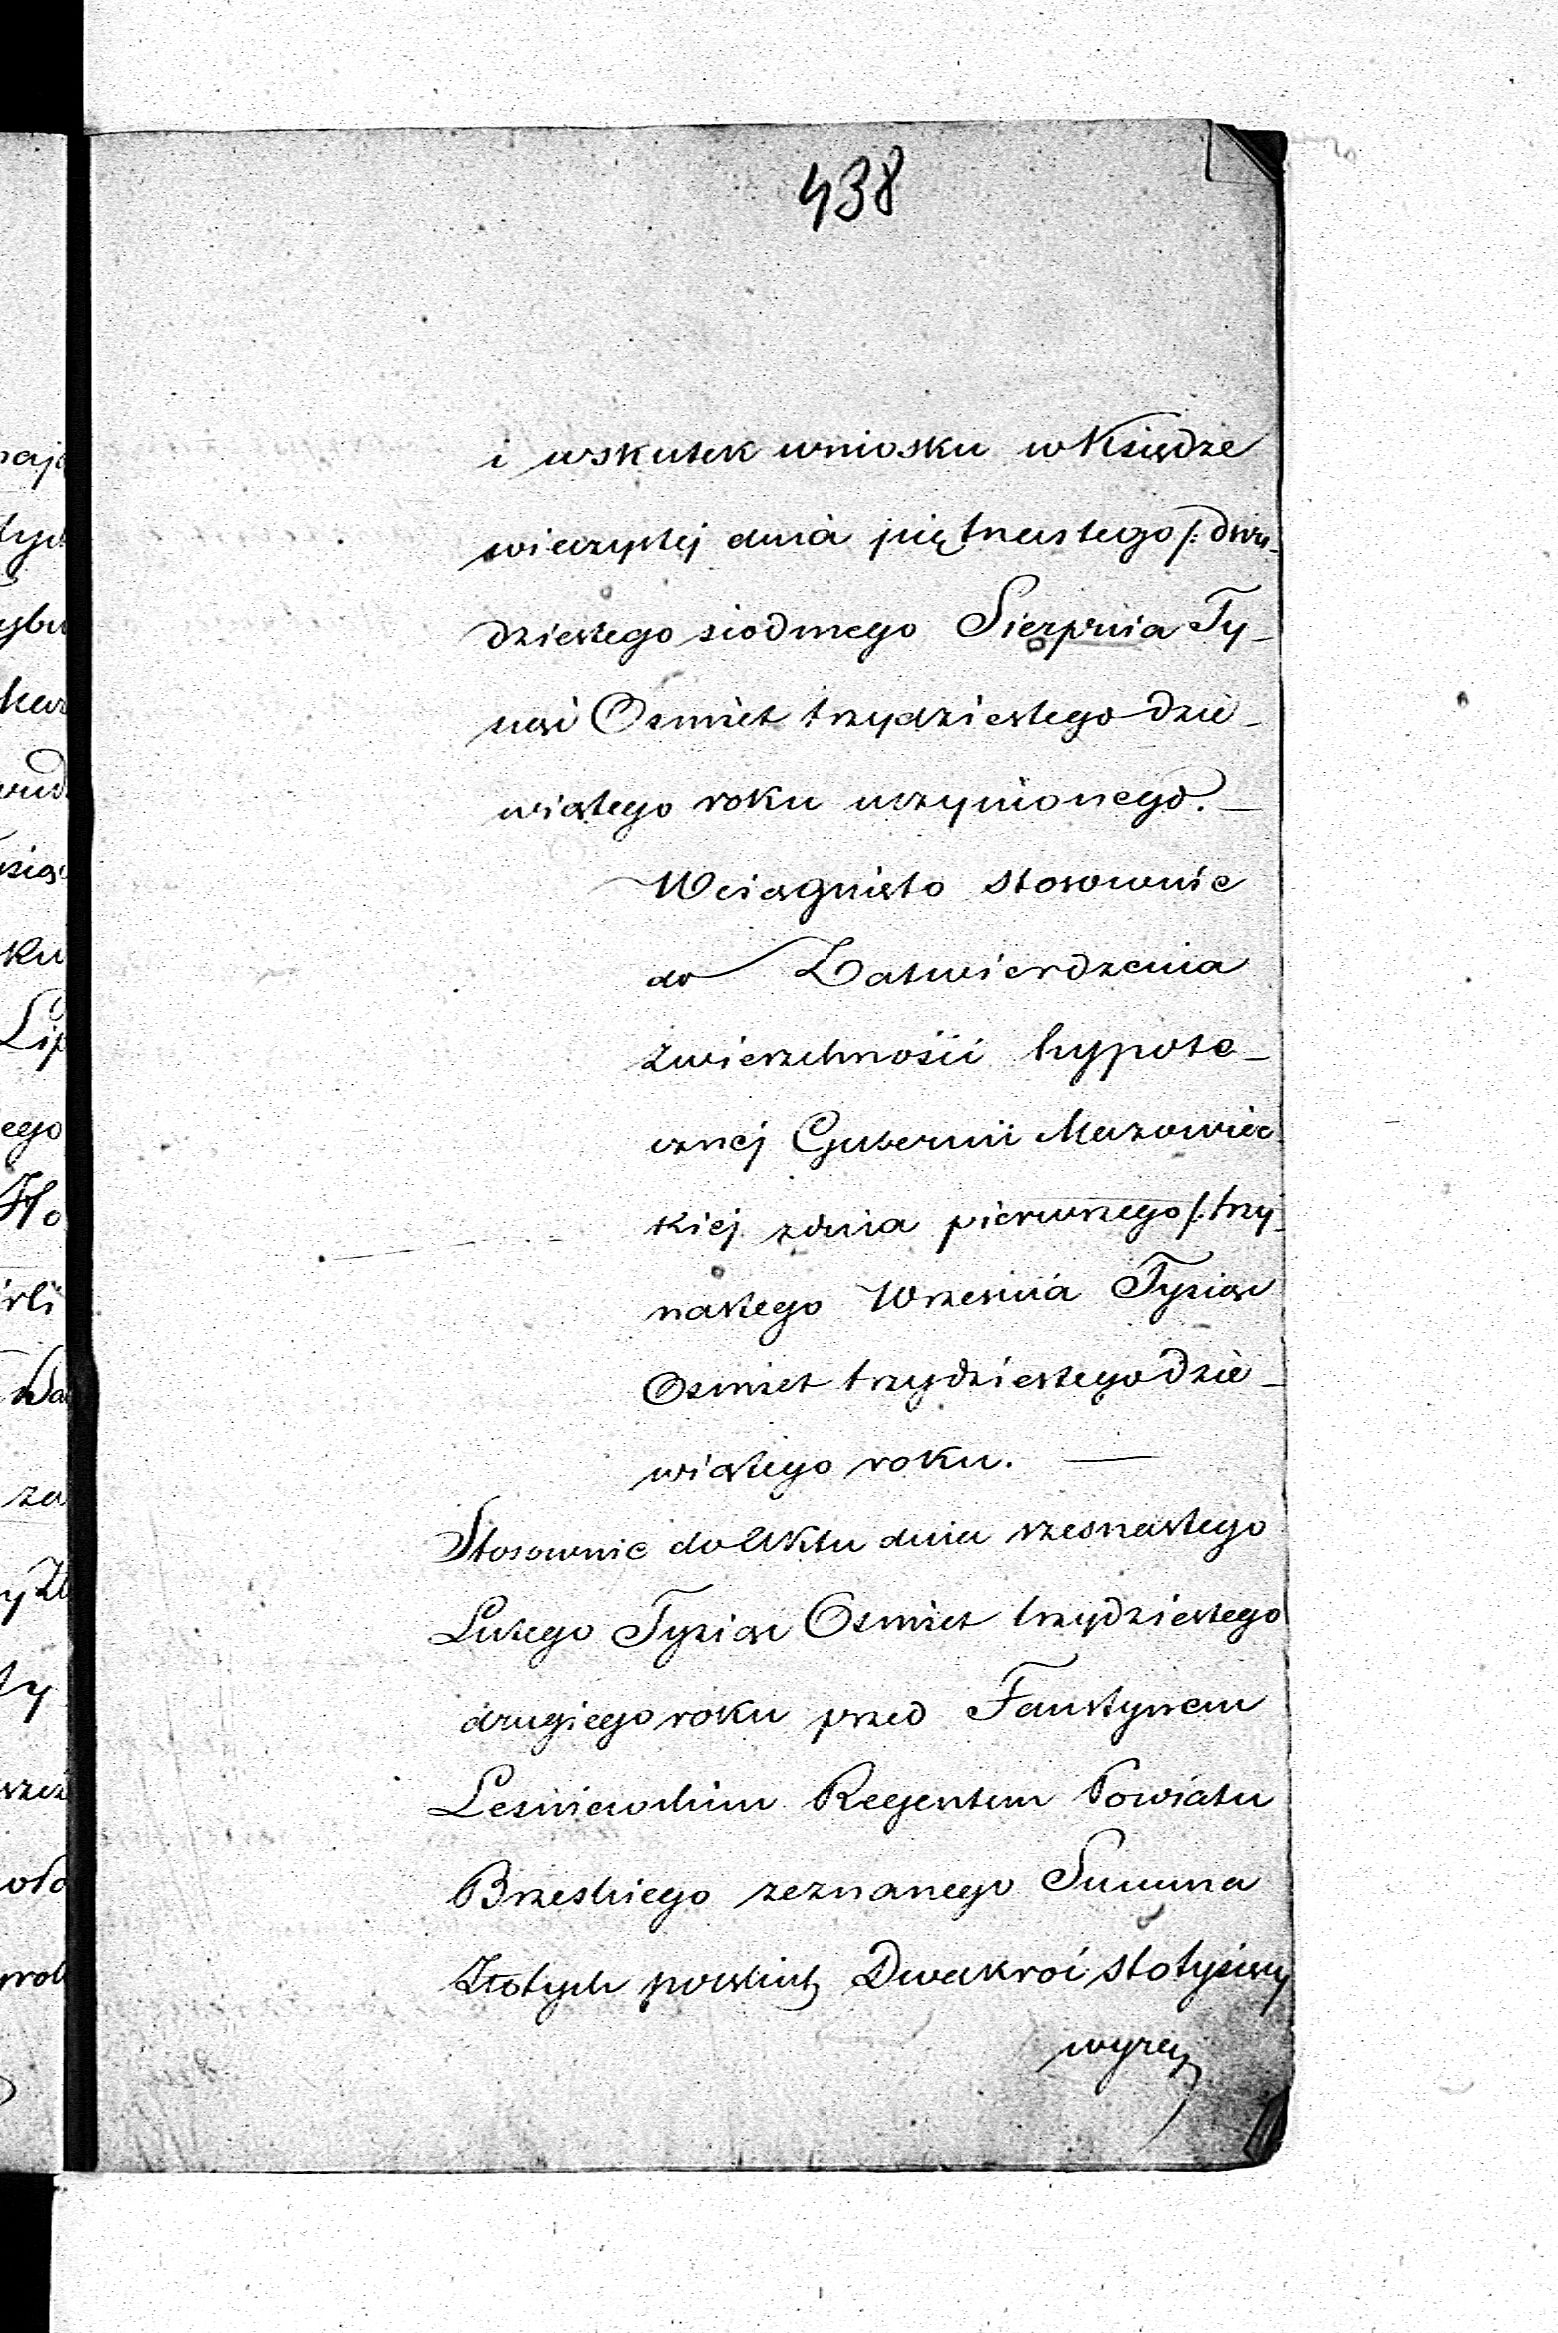 438
i wskutek wniosku w Księdze
wieczystej dnia piętnastego /: dwu-
dziestego siodmego Sierpnia Ty-
siąc Osmset trzydziestego dzie-
wiątego roku uczynionego. —
Wciągnięto stosownie
do Zatwierdzenia
Zwierzchności hypote-
cznej Gubernii Mazowiec
kiej z dnia pierwszego /: trzy-
nastego Września Tysiąc
Osmset trzydziestego dzie-
wiątego roku. —
Stosownie do Aktu dnia szesnastego
Lutego Tysiąc Osmset trzydziestego
drugiego roku przed Faustynem
Lesniewskim Regentem Powiatu
Brzeskiego zeznanego Summa
Złotych polskich Dwakroć stotysięcy